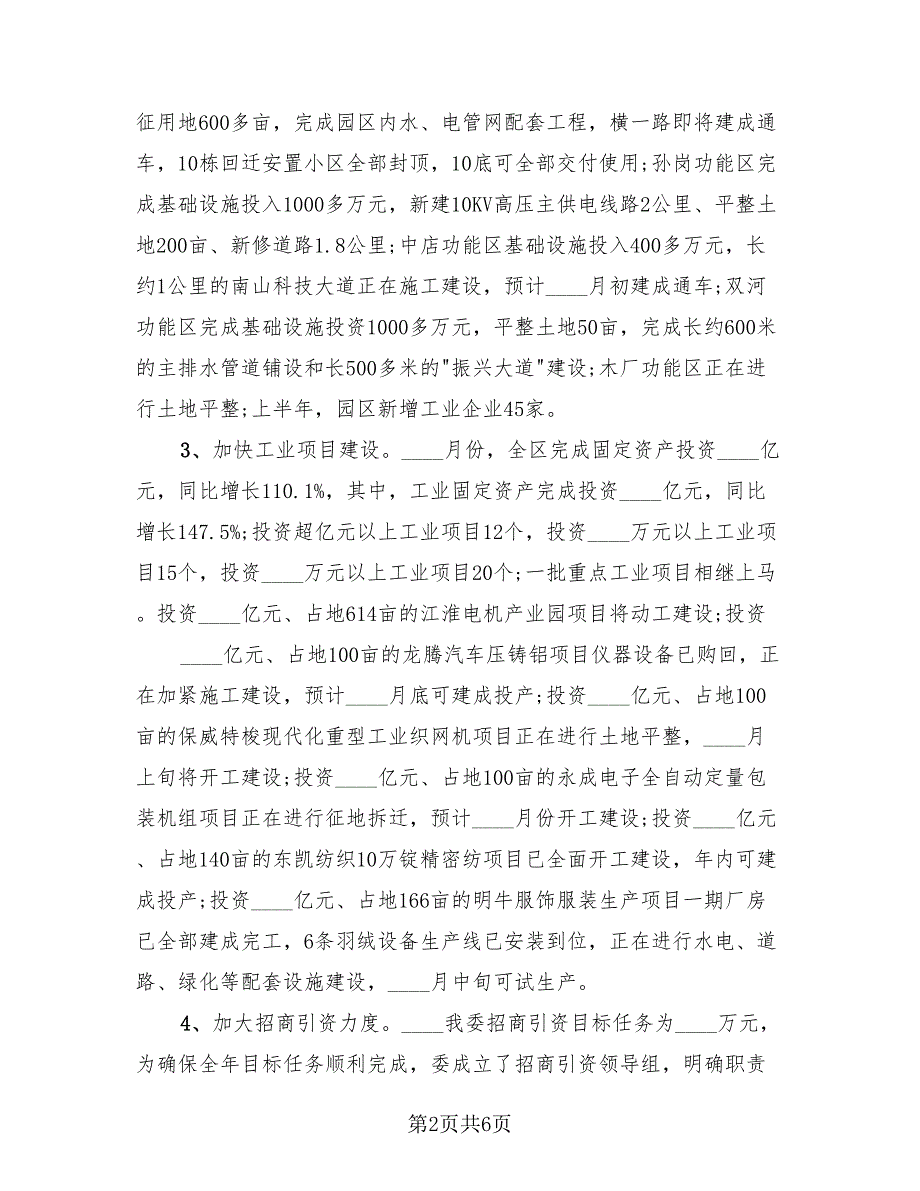 征用地600多亩，完成园区内水、电管网配套工程，横一路即将建成通
车，10栋回迁安置小区全部封顶，10底可全部交付使用;孙岗功能区完
成基础设施投入1000多万元，新建10KV高压主供电线路2公里、平整土
地200亩、新修道路1.8公里;中店功能区基础设施投入400多万元，长
约1公里的南山科技大道正在施工建设，预计____月初建成通车;双河
功能区完成基础设施投资1000多万元，平整土地50亩，完成长约600米
的主排水管道铺设和长500多米的"振兴大道"建设;木厂功能区正在进
行土地平整;上半年，园区新增工业企业45家。
3、加快工业项目建设。____月份，全区完成固定资产投资____亿
元，同比增长110.1%，其中，工业固定资产完成投资____亿元，同比
增长147.5%;投资超亿元以上工业项目12个，投资____万元以上工业项
目15个，投资____万元以上工业项目20个;一批重点工业项目相继上马
。投资____亿元、占地614亩的江淮电机产业园项目将动工建设;投资
____亿元、占地100亩的龙腾汽车压铸铝项目仪器设备已购回，正
在加紧施工建设，预计____月底可建成投产;投资____亿元、占地100
亩的保威特梭现代化重型工业织网机项目正在进行土地平整，____月
上旬将开工建设;投资____亿元、占地100亩的永成电子全自动定量包
装机组项目正在进行征地拆迁，预计____月份开工建设;投资____亿元
、占地140亩的东凯纺织10万锭精密纺项目已全面开工建设，年内可建
成投产;投资____亿元、占地166亩的明牛服饰服装生产项目一期厂房
已全部建成完工，6条羽绒设备生产线已安装到位，正在进行水电、道
路、绿化等配套设施建设，____月中旬可试生产。
4、加大招商引资力度。____我委招商引资目标任务为____万元，
为确保全年目标任务顺利完成，委成立了招商引资领导组，明确职责
第2页共6页